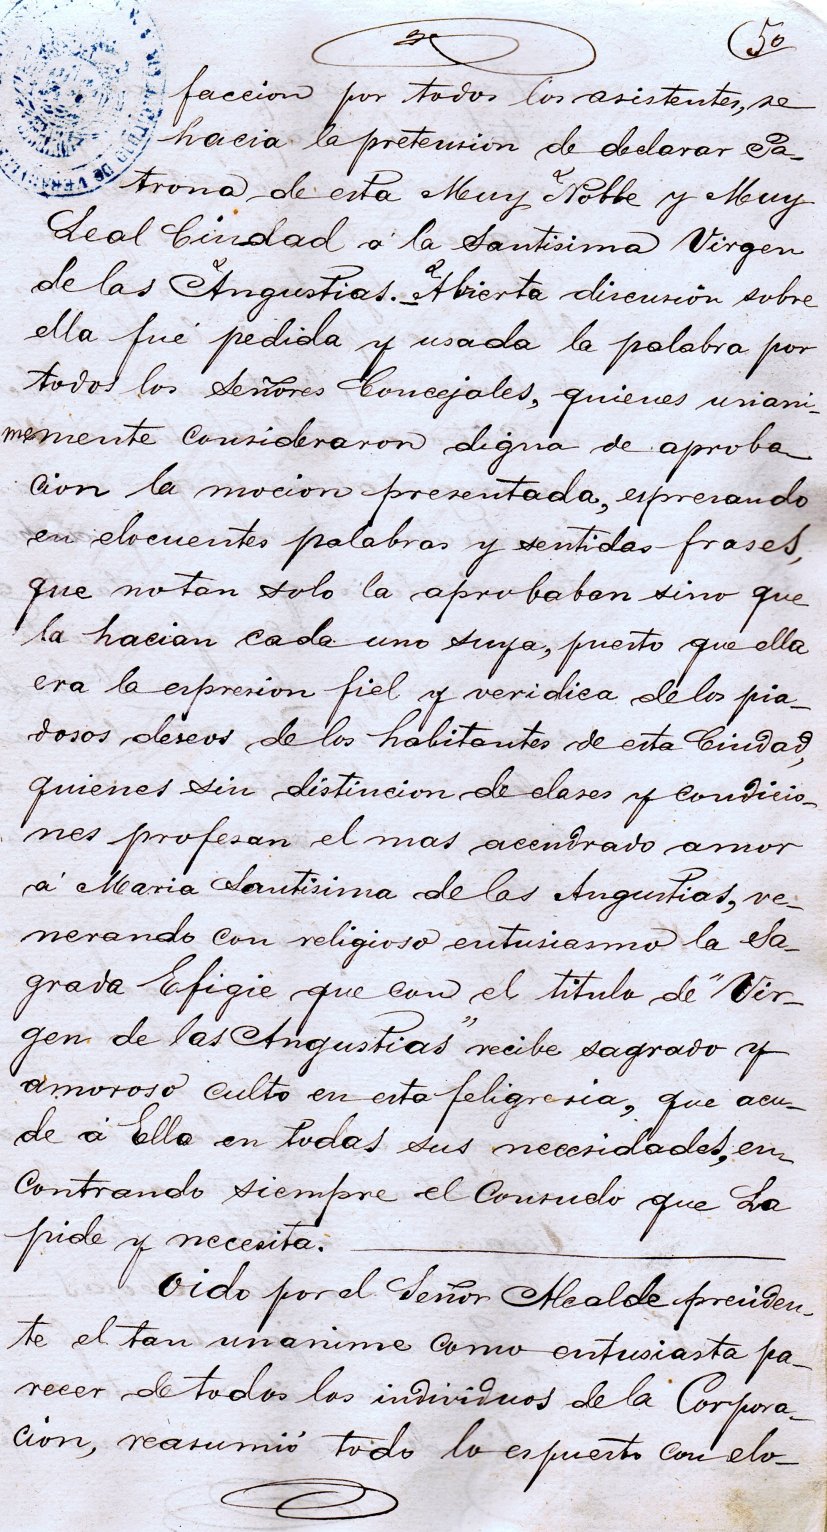 50
faccion por todos los asistentes, se
hacia la pretension de declarar Pa-
trona de esta Muy Noble y Muy
Leal Ciudad á la Santisima Virgen
de las Angustias. - Abierta discusión sobre
ella fué pedida y usada la palabra por
todos los Señores Concejales, quienes unani-
memente consideraron digna de aproba-
cion la mocion presentada, espresando
en elocuentes palabras y sentidas frases,
que no tan solo la aprobaban sino que
la hacian cada uno suya, puesto que ella
era la espresion fiel y veridica de los pia-
dosos deseos de los habitantes de esta Ciudad,
quienes sin distincion de clases y condicio-
nes profesan el mas acendrado amor
á Maria Santisima de las Angustias, ve-
nerando con religioso entusiasmo la Sa-
grada Efigie que con el titulo de "Vir-
gen de las Angustias" recibe sagrado y
amoroso culto en esta feligresia, que acu-
de á Ella en todas sus necesidades, en-
contrando siempre el Consuelo que La
pide y necesita.
Oido por el Señor Alcalde presiden-
te el tan unanime como entusiasta pa-
recer de todos los individuos de la Corpora-
ción, reasumió todo lo espuesto con elo-